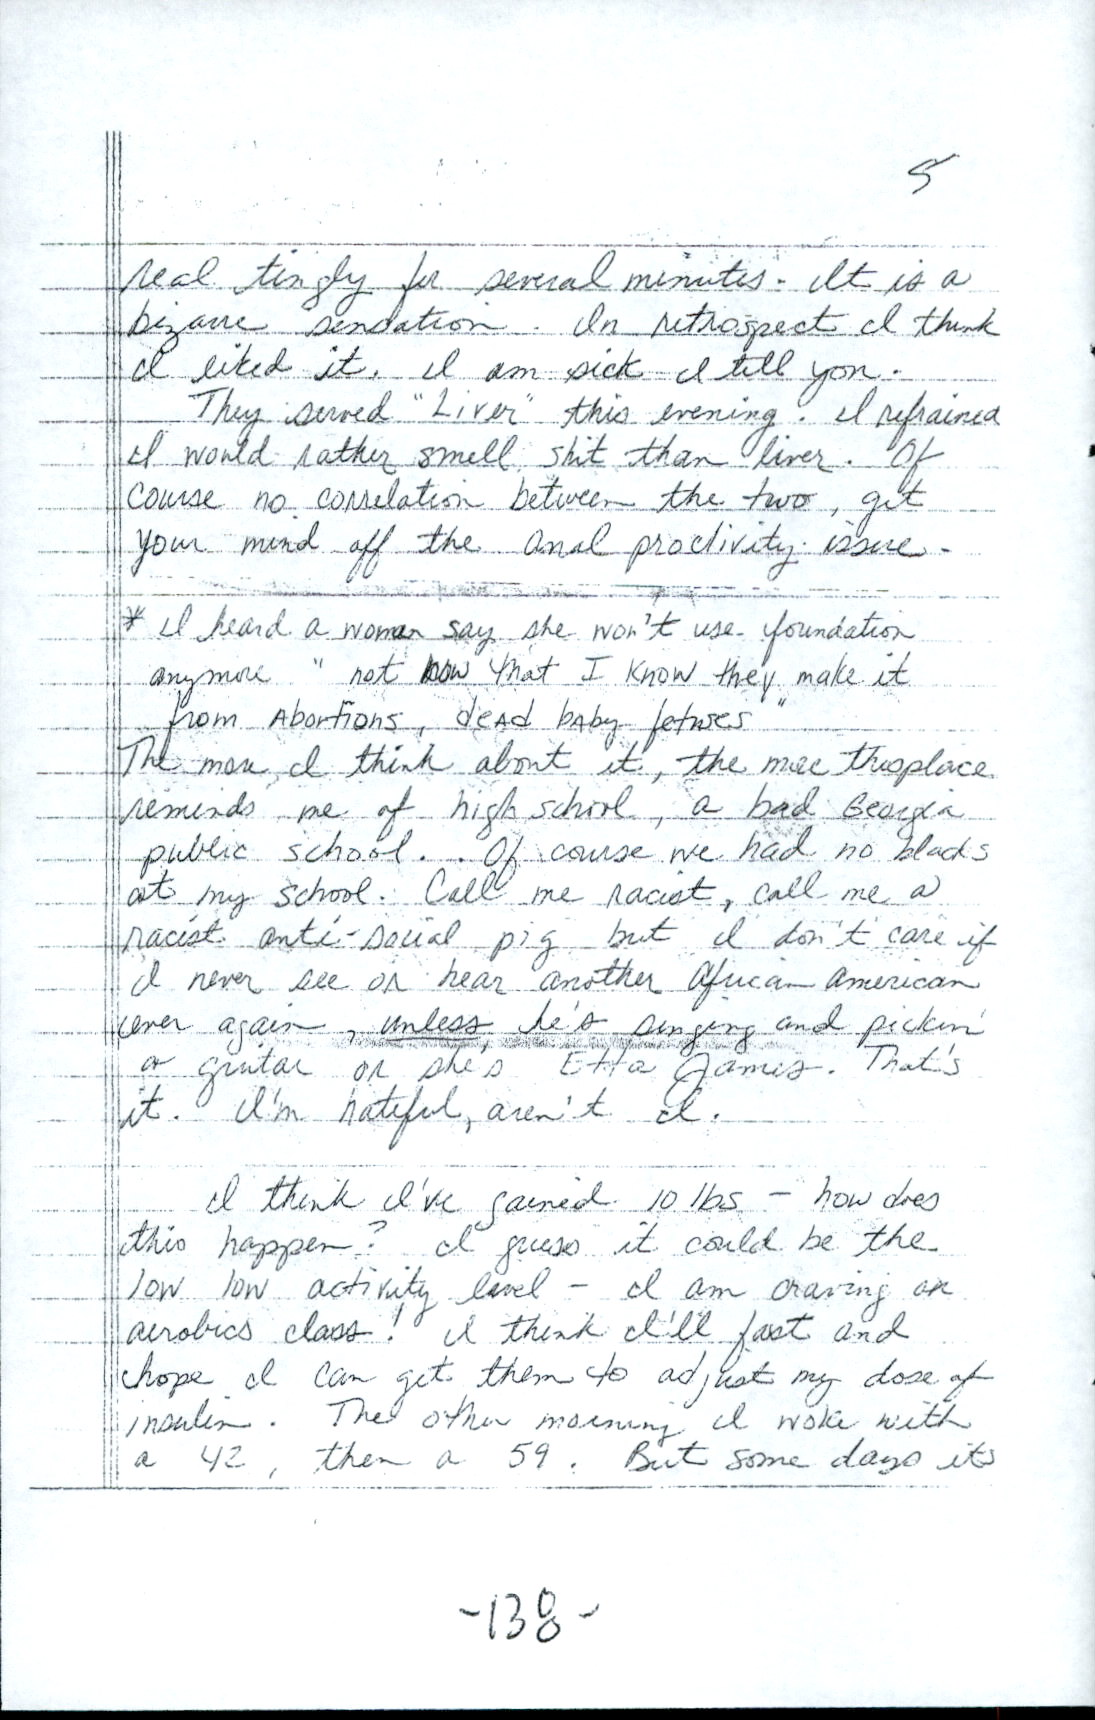 5
real tingly for several minutes. It is a
bizarre sensation. In retrospect I think
I liked it. I am sick I tell you.
They served "Liver" this evening. I refrained
I would rather smell shit than liver. Of
course no correlation between the two, get
your mind off the anal proclivity issue.
* I heard a woman say she won't use foundation
anymore "not now that I know they make it
from Abortions, dead baby fetuses"
The more I think about it, the more this place
reminds me of high school, a bad Georgia
public school. Of course we had no blacks
at my school. Call me racist, call me a
racist anti-social pig but I don't care if
I never see or hear another African American
ever again, unless he's singing and pickin'
a guitar or she's Etta James. That's
it. I'm hateful, aren't I.
I think I've gained 10 lbs - how does
this happen? I guess it could be the
low low activity level - I am craving an
aerobics class! I think I'll fast and
hope I can get them to adjust my dose of
insulin. The other morning I woke with
a 42, then a 59. But some days its
-138-